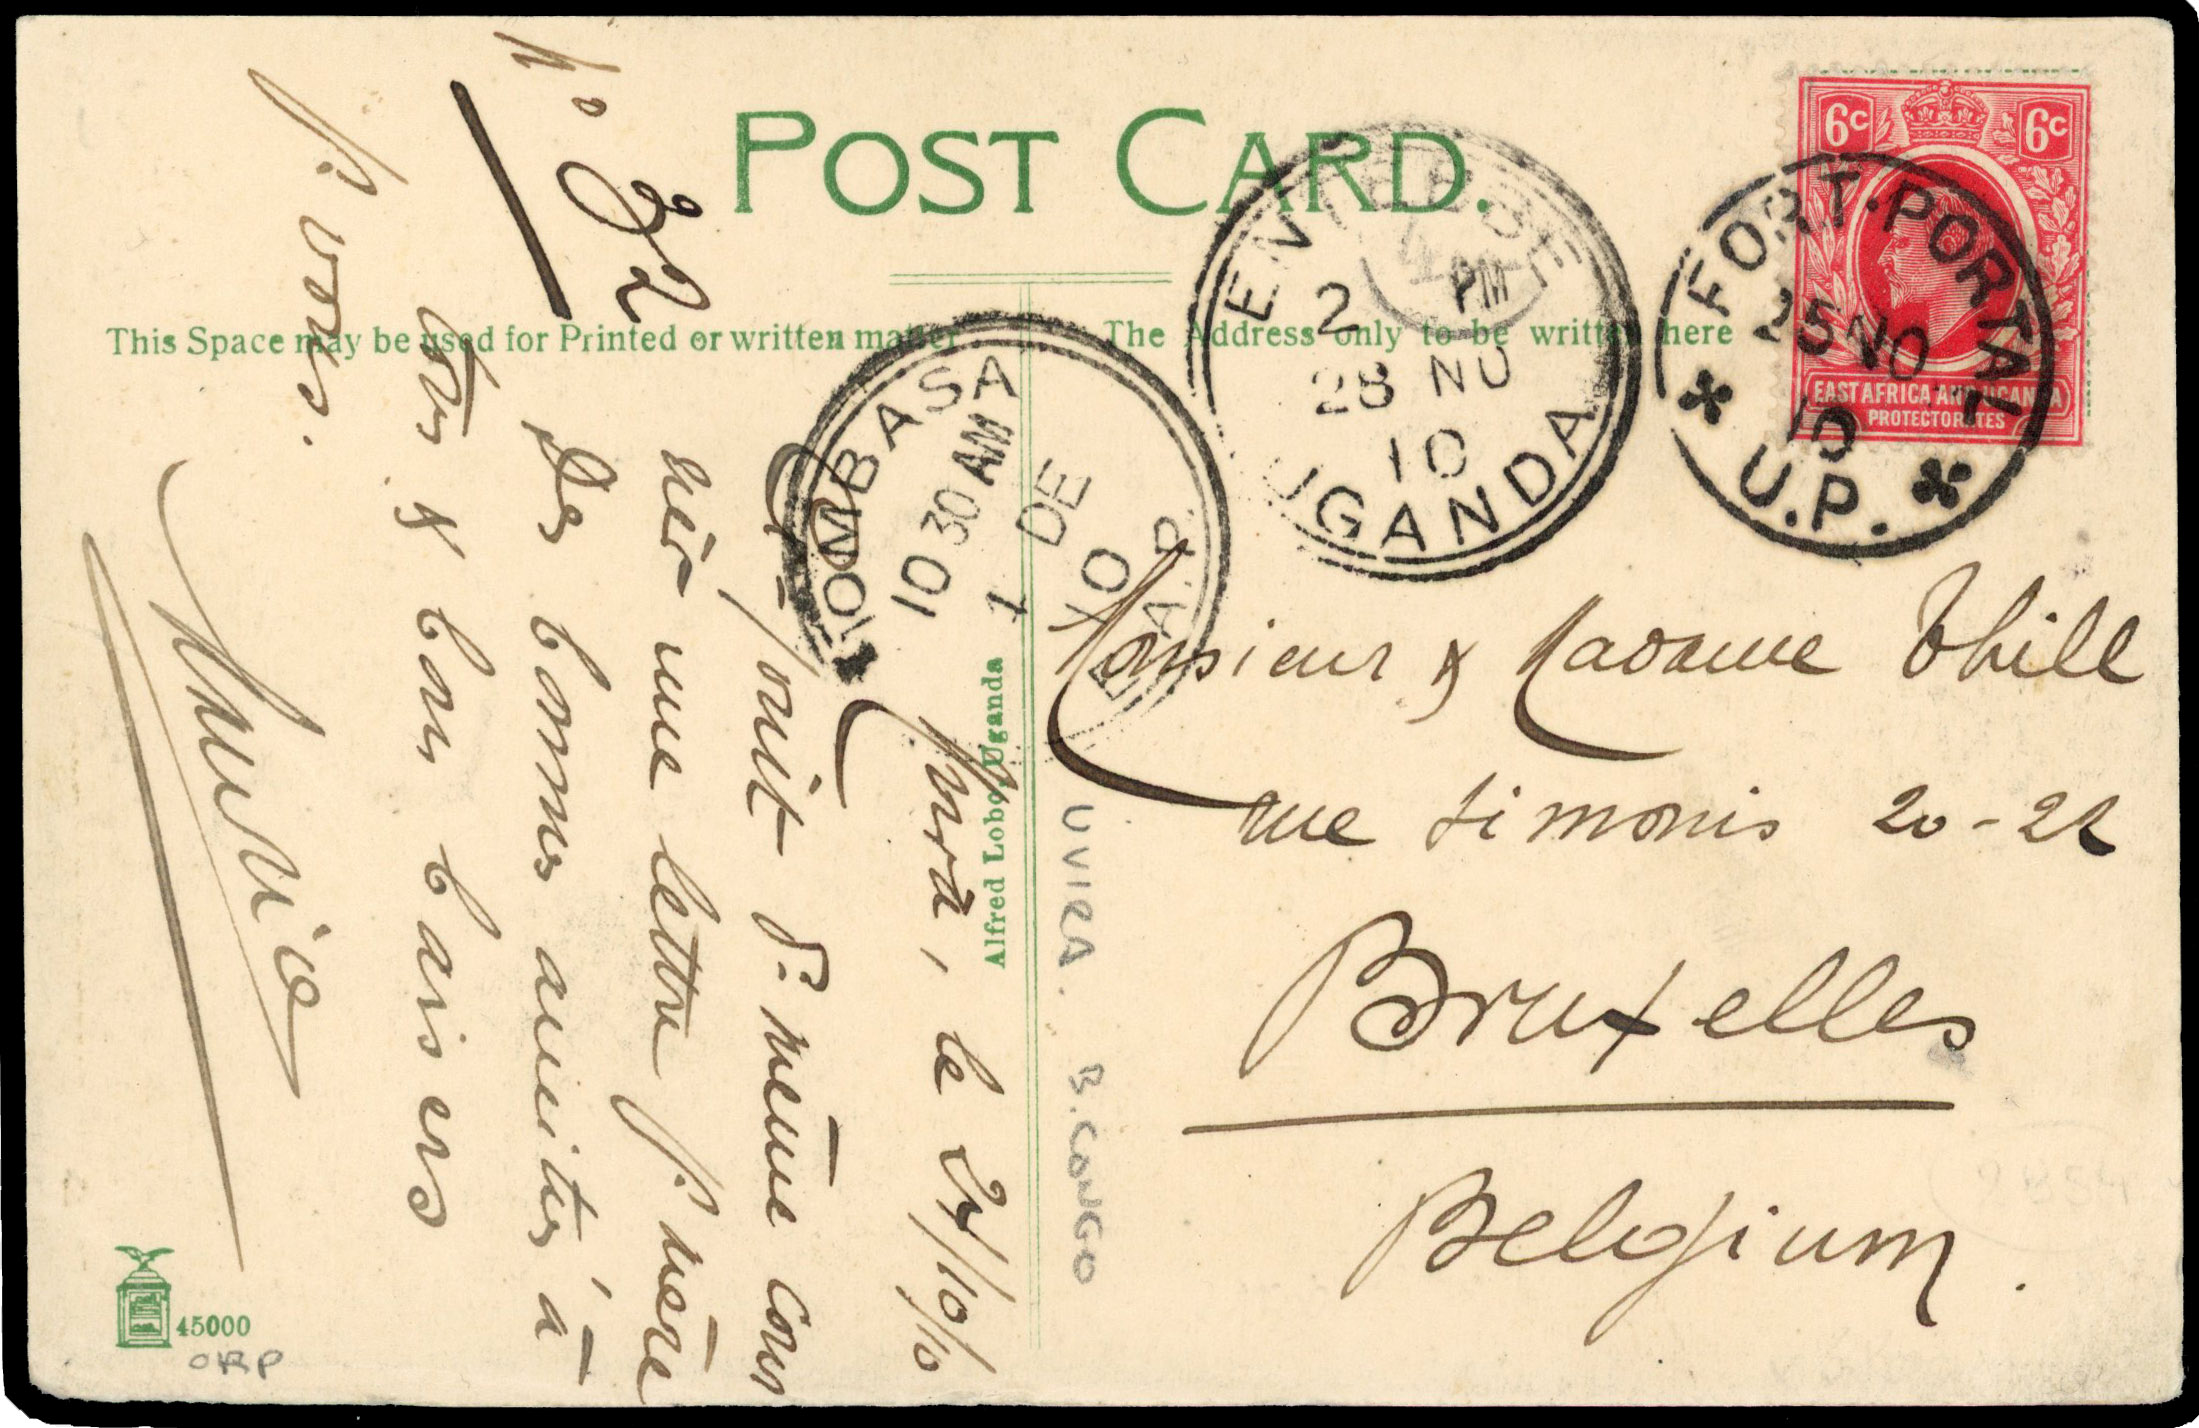 POST CARD.
This Space may be used for Printed or written matter
The Address only to be written here
Alfred Lobo, Uganda
45000
ORP
6c 6c
EAST AFRICA AND UGANDA
PROTECTORATES
FORT·PORTAL
25 NO
10
U.P.
ENTEBBE
2 PM
28 NO
10
UGANDA
MOMBASA
10 30 AM
1 DE
10
E.A.P.
UVIRA. B. CONGO
Monsieur & Madame Thill
rue Simonis 20-22
Bruxelles
Belgium.
No 32
le 24/10/10
même cour
une lettre p. mère
De bonnes amitiés à
tous & bons baisers
p. vous.
Maurice